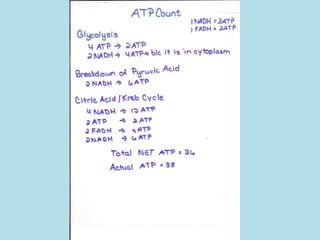 ATP Count
1 NADH = 3ATP
1 FADH = 2ATP
Glycolysis
4 ATP → 2ATP
2 NADH → 4ATP → b/c it is in cytoplasm
Breakdown of Pyruvic Acid
2 NADH → 6ATP
Citric Acid/Kreb Cycle
4 NADH → 12 ATP
2 ATP → 2 ATP
2 FADH → 4 ATP
2 NADH → 6 ATP
Total NET ATP = 36
Actual ATP = 38